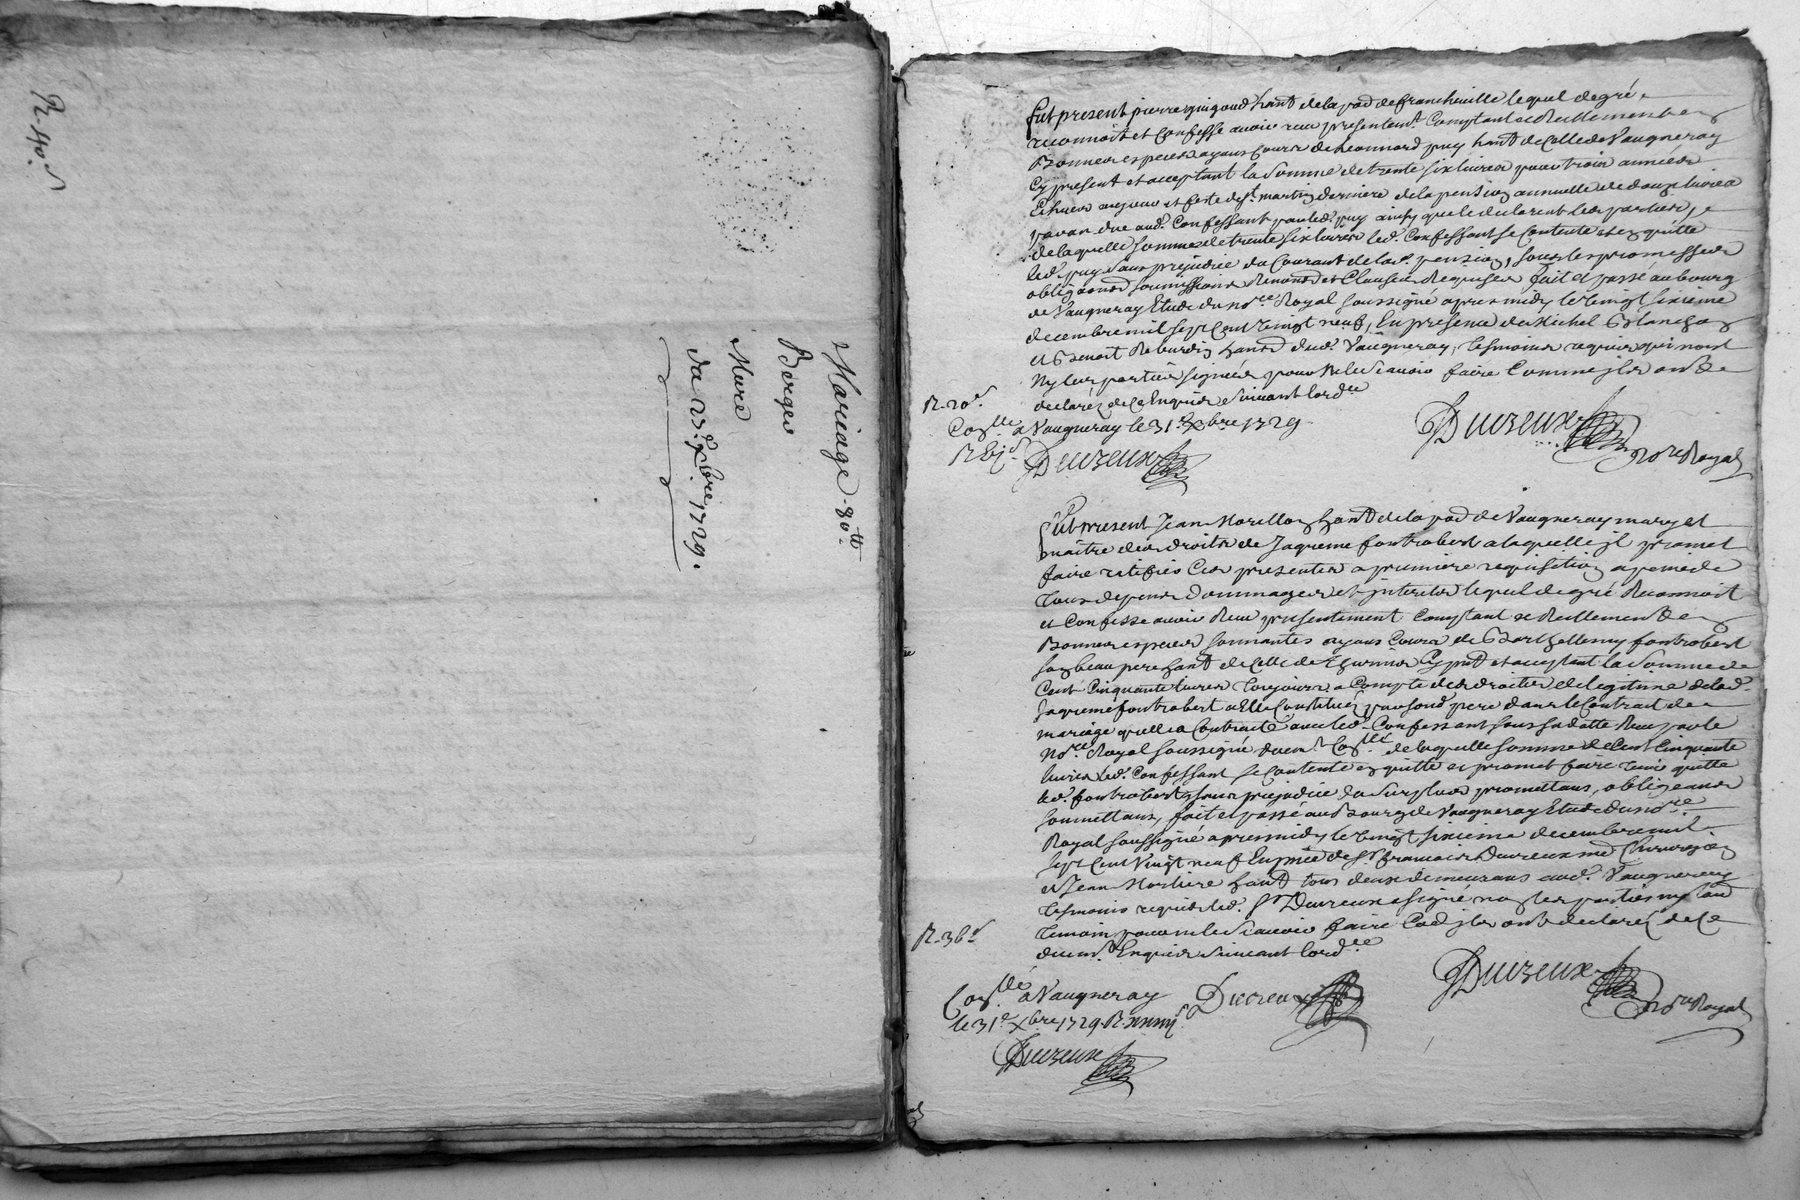 R. 40. s
Mariage 80tt
Berger
Mure
du 23.e Xbre 1729.
fut present pierre habt de la pad de francheville lequel de gré
reconnoit et confesse avoir receu presentemt. comptant et reellement en
bonnes especes ayans cours de Leonnard puy habt de celle de Vaugneray
cy present et acceptant la somme de trente six livres pour trois années
echues au jour et feste de st. martin derniere de la pension annuelle de douze livres
par an due aud. confessant par led. puy ainsy que le declarent les parties,
de laquelle somme de trente six livres led. confessant se contente et en quitte
led. puy sans prejudice du courant de lad. pension, sous les promesses
obligaons soumissions renons et clauses requises fait et passé au bourg
de Vaugneray Etude du nore Royal soussigné apres midy le vingt sixieme
decembre mil sept cent vingt neuf, en presence de Michel Blanchon
et Benoit Reburdin habts dud. Vaugneray, tesmoins requis qui n'ont
ny les parties signées pour ne le scavoir faire comme ils ont
declaré de ce enquis suivant lordce
R. 20s
Conllé a Vaugneray le 31e Xbre 1729
R
Ducreux
Ducreux
nore Royal
fut present Jean Morillon habt de la pad de Vaugneray mary et
maitre des droits de Jaqueme fontrobert a laquelle il promet
faire ratifier ces presentes a premiere requisition a peine de
tous depens dommages et interets lequel de gré reconnoit
et confesse avoir receu presentement comptant et reellement en
bonnes especes sonnantes ayans cours de Barthellemy fontrobert
son beau pere habt de celle de Thurins cy pnt et acceptant la somme de
cent cinquante livres toujours a compte des droits de legitime de lad.
Jaqueme fontrobert a elle constitués par sond. pere dans le contrat de
mariage quelle a contracté avec led. confessant sous sa datte receu par le
nore Royal soussigné duemt conllé de laquelle somme de cent cinquante
livres led. confessant se contente en quitte et promet faire tenir quitte
led. fontrobert sans prejudice du surplus promettans, obligeans
soumettans, fait et passé au Bourg de Vaugneray Etude du nore
Royal soussigné apres midy le vingt sixieme decembre mil
sept cent vingt neuf En pnce de sr francois Ducreux md chirurgien
et Jean Morliere habt tous deux demeurans aud. Vaugneray
tesmoins requis led. sr Ducreux a signé non les parties ny laud
temoin pour ne le scavoir faire ils ont declaré de ce
duemt. Enquis suivant lordce
R. 36s
Conllé a Vaugneray
le 31e Xbre 1729 R
Ducreux
Ducreux
Ducreux
nore Royal